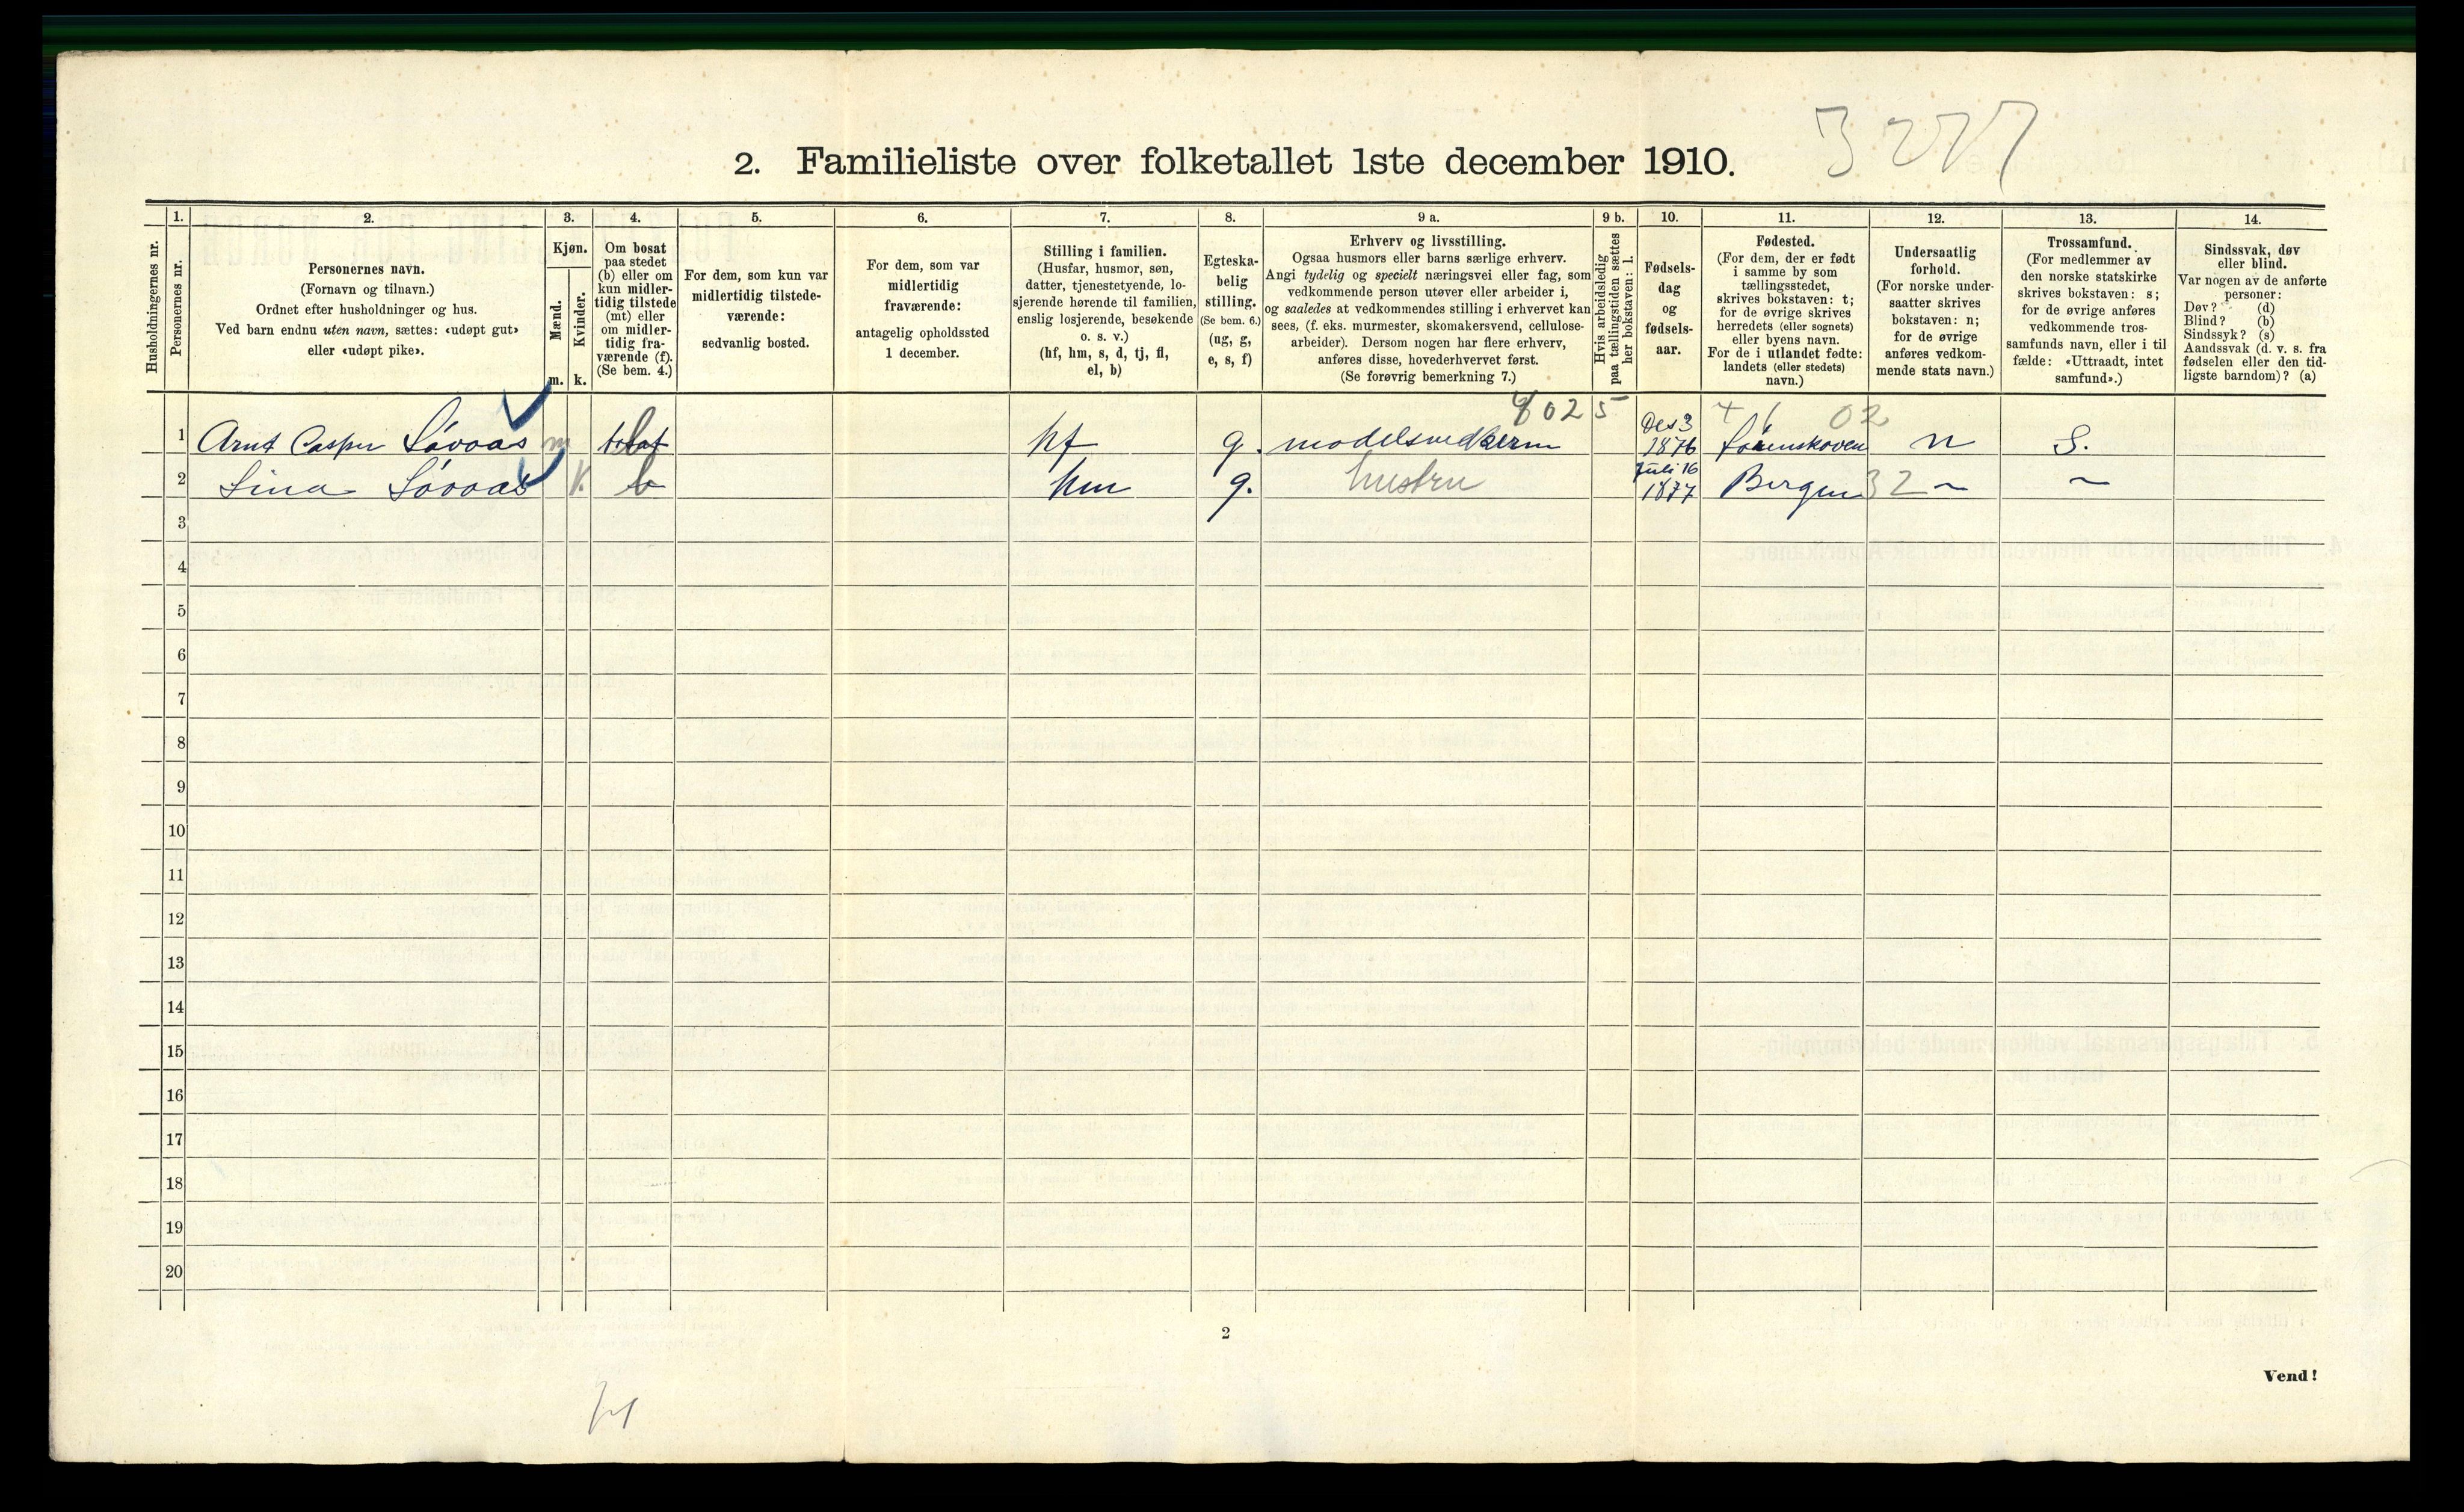 3277
2. Familieliste over folketallet 1ste december 1910.
Husholdningernes nr.
1.
Personernes nr.
2.
Personernes navn.
(Fornavn og tilnavn.)
Ordnet efter husholdninger og hus.
Ved barn endnu uten navn, sættes: «udøpt gut»
eller «udøpt pike».
3.
Kjøn.
Mænd.
m.
Kvinder.
k.
4.
Om bosat
paa stedet
(b) eller om
kun midler-
tidig tilstede
(mt) eller
om midler-
tidig fra-
værende (f).
(Se bem. 4.)
5.
For dem, som kun var
midlertidig tilstede-
værende:
sedvanlig bosted.
6.
For dem, som var
midlertidig
fraværende:
antagelig opholdssted
1 december.
7.
Stilling i familien.
(Husfar, husmor, søn,
datter, tjenestetyende, lo-
sjerende hørende til familien,
enslig losjerende, besøkende
o. s. v.)
(hf, hm, s, d, tj, fl,
el, b)
8.
Egteska-
belig
stilling.
(Se bem. 6.)
(ug, g,
e, s, f)
9 a.
Erhverv og livsstilling.
Ogsaa husmors eller barns særlige erhverv.
Angi tydelig og specielt næringsvei eller fag, som
vedkommende person utøver eller arbeider i,
og saaledes at vedkommendes stilling i erhvervet kan
sees, (f. eks. murmester, skomakersvend, cellulose-
arbeider). Dersom nogen har flere erhverv,
anføres disse, hovederhvervet først.
(Se forøvrig bemerkning 7.)
9 b.
Hvis arbeidsledig
paa tællingstiden sættes
her bokstaven: l.
10.
Fødsels-
dag
og
fødsels-
aar.
11.
Fødested.
(For dem, der er født
i samme by som
tællingsstedet,
skrives bokstaven: t;
for de øvrige skrives
herredets (eller sognets)
eller byens navn.
For de i utlandet fødte:
landets (eller stedets)
navn.)
12.
Undersaatlig
forhold.
(For norske under-
saatter skrives
bokstaven: n;
for de øvrige
anføres vedkom-
mende stats navn.)
13.
Trossamfund.
(For medlemmer av
den norske statskirke
skrives bokstaven: s;
for de øvrige anføres
vedkommende tros-
samfunds navn, eller i til
fælde: «Uttraadt, intet
samfund».)
14.
Sindssvak, døv
eller blind.
Var nogen av de anførte
personer:
Døv? (d)
Blind? (b)
Sindssyk? (s)
Aandssvak (d. v. s. fra
fødselen eller den tid-
ligste barndom)? (a)
8025 02
1 Arnt Casper Løvaas m b hf g. Des 3 1876 n S.
2 Lina Løvaas k. b hm g. hustru Juli 16 1877 Bergen 32 ~ ~
3
4
5
6
7
8
9
10
11
12
13
14
15
16
17
18
19
20
2
Vend!